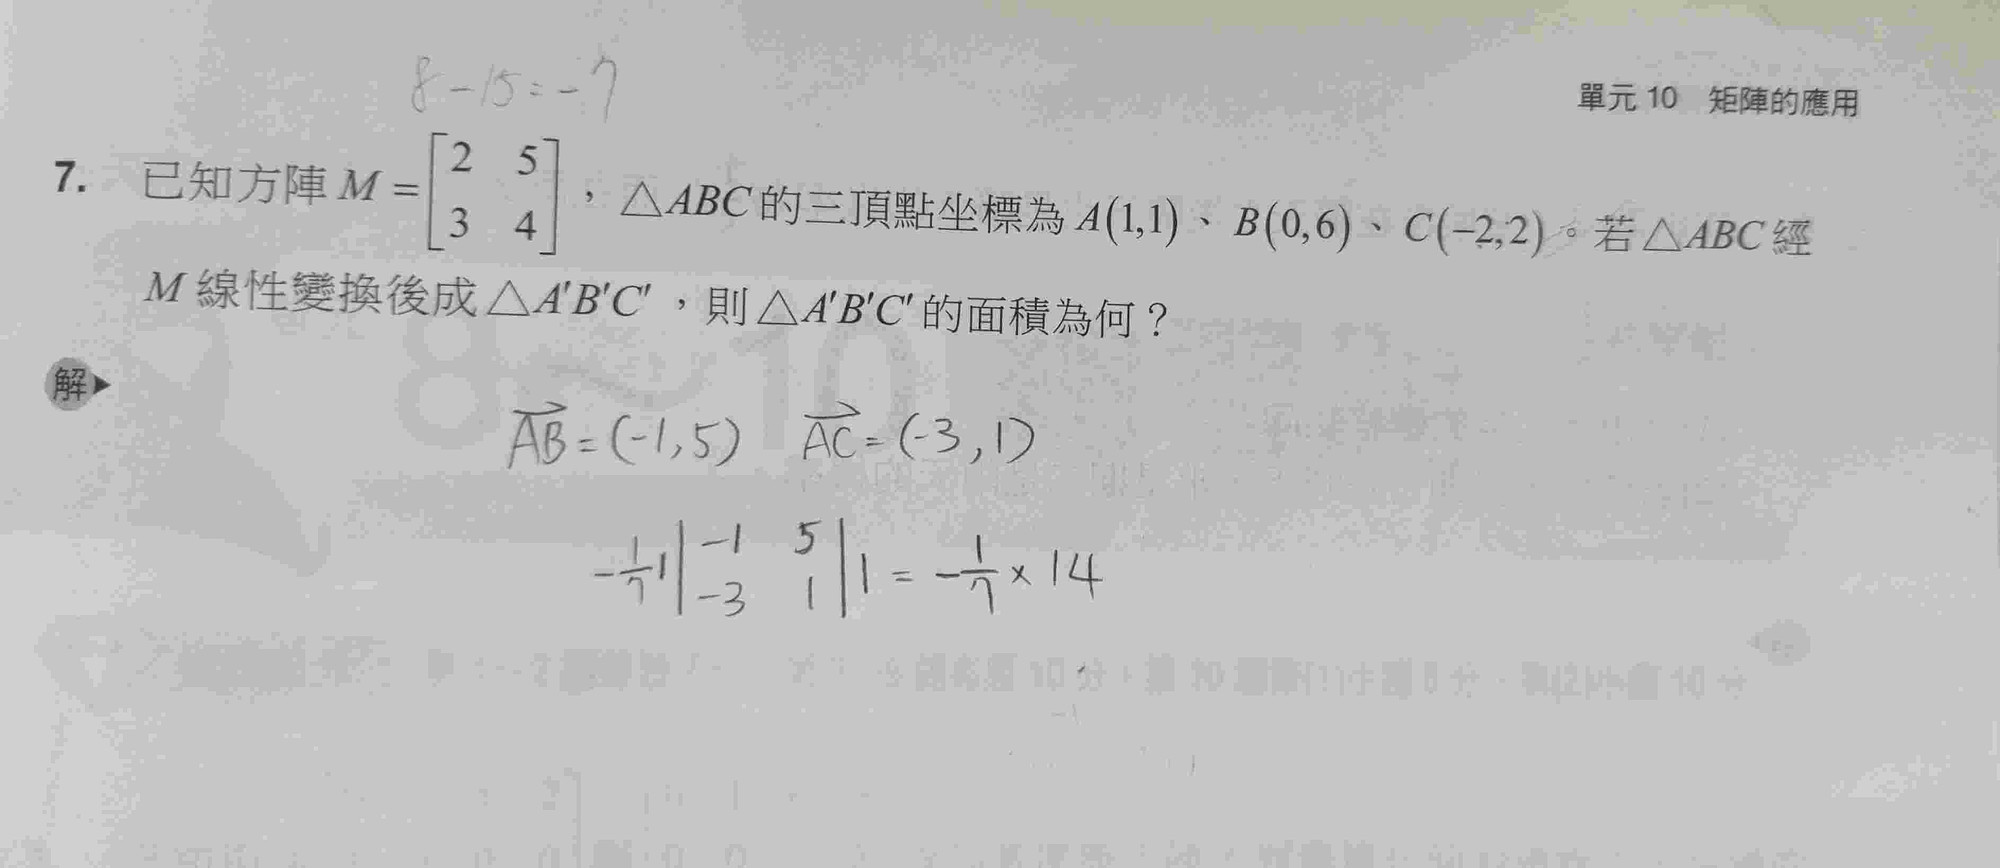 8-15=-7
單元 10 矩陣的應用
7. 已知方陣 M = [2 5; 3 4],△ABC 的三頂點坐標為 A(1,1)、B(0,6)、C(-2,2)。若△ABC 經
M 線性變換後成△A'B'C',則△A'B'C' 的面積為何?
解▶
AB=(-1,5) AC=(-3,1)
-1/7 | |-1 5; -3 1| | = -1/7 × 14